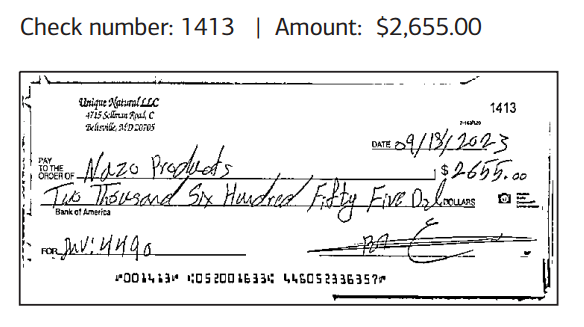 Check number: 1413 | Amount: $2,655.00
Unique Natural LLC
4715 Sellman Road, C
Beltsville, MD 20705
1413
DATE 09/13/2023
PAY TO THE ORDER OF Nazo Products $2655.00
Two Thousand Six Hundred Fifty Five Dol DOLLARS
Bank of America
FOR Inv: 4490
⑈001413⑈ ⑆052001633⑆ 446052336357⑈